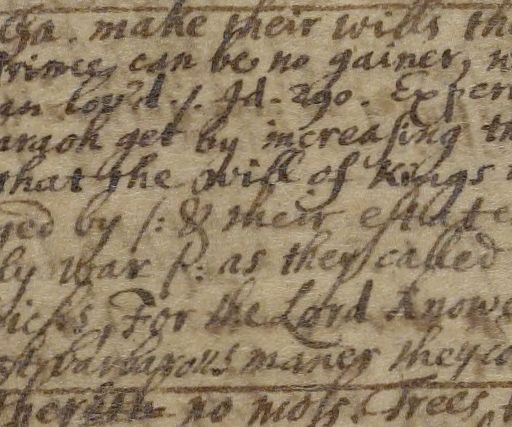 make their wills th
Prince, can be no gainer, n
an lov'd ./. Jd. 290. Exper
get by increasing th
that the will of Kings
ged by /: & their estate
ly war /: as they called
icks, For the Lord knowe
st barbarous maner they co
Therein no moss. Trees,